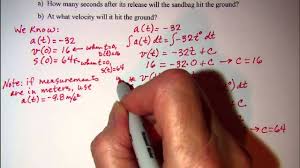 a) How many seconds after its release will the sandbag hit the ground?
b) At what velocity will it hit the ground?
We Know:
a(t) = -32
v(0) = 16 ← when t=0,
s(0) = 64 ← when t=0
s(t)=64
Note: if measurements
are in meters, use
a(t) = -9.8 m/s²
a(t) = -32
∫a(t)dt = ∫-32t⁰dt
v(t) = -32t + C
16 = -32·0 + C → C = 16
v(
dt
+ C
→ C = 64